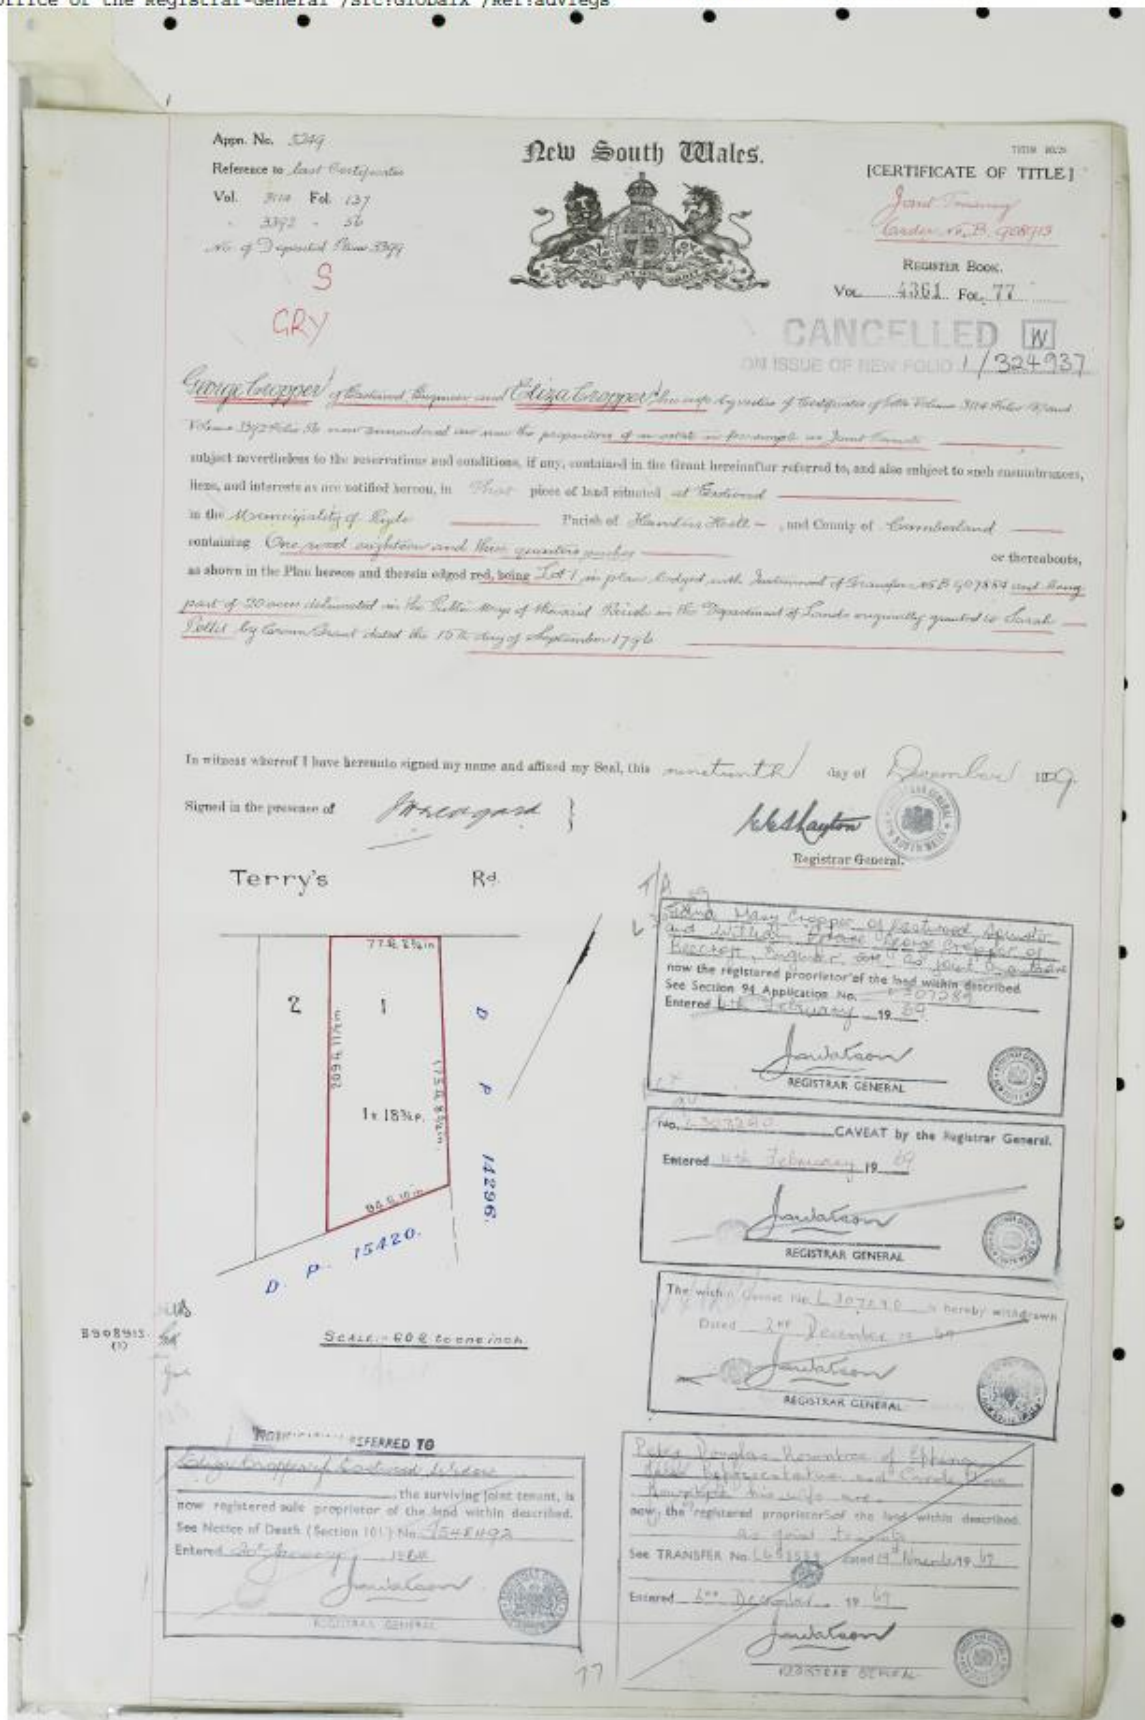 Office of the Registrar-General /Src:GlobalX /Ref:advlegs
Appn. No. 5249
Reference to Last Certificates
Vol. 3114 Fol. 137
" 3392 " 56
No. of Deposited Plan 3399
S
GRY
New South Wales.
[CERTIFICATE OF TITLE]
Joint Tenancy
under No. B. 908913
REGISTER BOOK.
VOL. 4361 FOL. 77
CANCELLED W
ON ISSUE OF NEW FOLIO 1/324937
George Cropper of Eastwood Engineer and Eliza Cropper his wife by virtue of Certificates of Title Volume 3114 Folio 137 and
Volume 3392 Folio 56 now surrendered are now the proprietors of an estate in fee simple as Joint Tenants
subject nevertheless to the reservations and conditions, if any, contained in the Grant hereinafter referred to, and also subject to such encumbrances,
liens, and interests as are notified hereon, in That piece of land situated at Eastwood
in the Municipality of Ryde Parish of Hunters Hill , and County of Cumberland
containing One rood eighteen and three quarters perches or thereabouts,
as shown in the Plan hereon and therein edged red, being Lot 1 in plan lodged with Instrument of Transfer No. B 907884 and being
part of 20 acres delineated in the Public Map of the said Parish in the Department of Lands originally granted to Sarah
Pellit by Crown Grant dated the 15th day of September 1796
In witness whereof I have hereunto signed my name and affixed my Seal, this nineteenth day of December 1929.
Signed in the presence of
Registrar General.
Terry's Rd.
77 ft. 2¾ in.
2
1
209 ft. 11½ in.
175 ft. 8¾ in.
1r 18¾p.
84 ft. 10 in.
D P 14296.
D. P. 15420.
SCALE:- 60 ft to one inch.
B908913
(1)
Edna Mary Cropper of Eastwood, Spinster
and William George Cropper of
Beecroft, Engineer, are as joint tenants
now the registered proprietor of the land within described
See Section 94 Application No. L307289
Entered 4th February 19 69
REGISTRAR GENERAL
No. L307290 CAVEAT by the Registrar General.
Entered 4th February 19 69
REGISTRAR GENERAL
The within Caveat No. L307290 is hereby withdrawn
Dated 2nd December 19 69
REGISTRAR GENERAL
REFERRED TO
Eliza Cropper of Eastwood Widow
the surviving joint tenant, is
now registered sole proprietor of the land within described.
See Notice of Death (Section 101) No. J548492
Entered January
REGISTRAR GENERAL
Peter Douglas Rowntree of Epping
Sales Representative and
Rowntree his wife are
now the registered proprietors of the land within described.
as joint tenants
See TRANSFER No. dated November 19 69
Entered 2nd December 19 69
REGISTRAR GENERAL
77